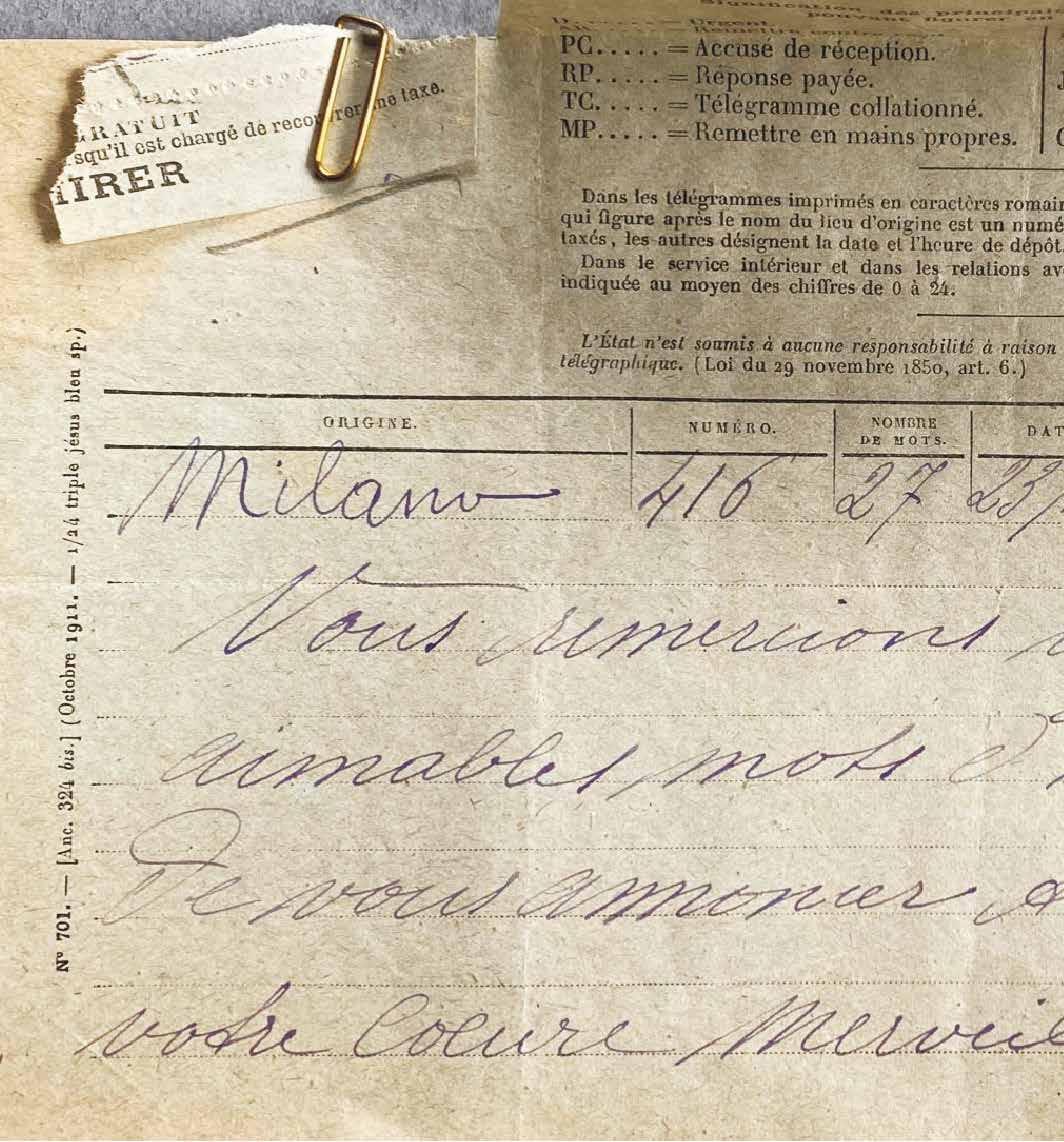 Signification des principales
pouvant figurer
D...... = Urgent.
Remettre contre
PC..... = Accusé de réception.
RP..... = Réponse payée.
TC..... = Télégramme collationné.
MP..... = Remettre en mains propres.
GRATUIT
squ'il est chargé de recouvrer une taxe.
IRER
Dans les télégrammes imprimés en caractères romain
qui figure après le nom du lieu d'origine est un numé
taxés, les autres désignent la date et l'heure de dépôt.
Dans le service intérieur et dans les relations av
indiquée au moyen des chiffres de 0 à 24.
L'État n'est soumis à aucune responsabilité à raison
télégraphique. (Loi du 29 novembre 1850, art. 6.)
ORIGINE. NUMÉRO. NOMBRE DE MOTS. DAT
Milano 416 27 23/
Vous remercions
aimables mots d
De vous annoncer
votre Coeure Merveil
N° 701. — [Anc. 324 bis.] (Octobre 1911. — 1/24 triple jésus bleu sp.)